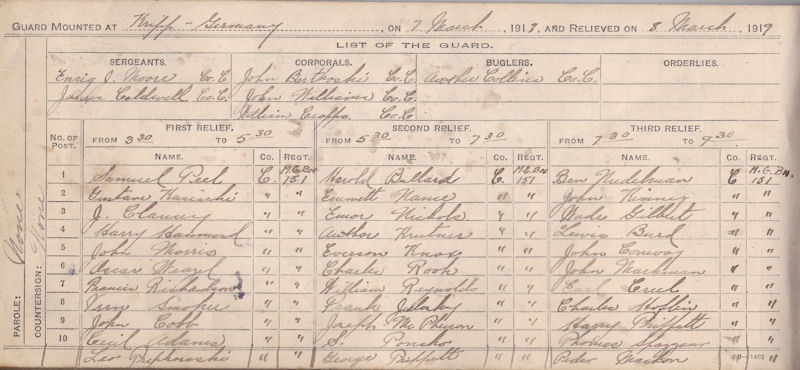 GUARD MOUNTED AT Kripp - Germany, ON 7 March, 1919, AND RELIEVED ON 8 March, 1919
LIST OF THE GUARD.
SERGEANTS. CORPORALS. BUGLERS. ORDERLIES.
Moore Co. C John Co. C Arthur Collins Co. C.
James Caldwell Co. C. John Co. C.
William Co. C.
No. OF POST. FIRST RELIEF. SECOND RELIEF. THIRD RELIEF.
FROM 3 30 TO 5 30 FROM 5 30 TO 7 30 FROM 7 30 TO 9 30
NAME. Co. REGT. NAME. Co. REGT. NAME. Co. REGT.
1 Samuel Peel C. M.G.BN 151 Harold Bullard C. M.G.BN 151 Ben C M.G.BN. 151
2 Gustave " " Emmett Nance " " John Kinney " "
3 J. Clancey " " Nichols " " Wade Gilbert " "
4 Harry Hammond " " Arthur " " Lewis Burd " "
5 John Morris " " Everson Knox " " John Conway " "
6 Oscar " " Charles Rook " " John " "
7 Francis Richardson " " William Reynolds " " Earl " "
8 Vern " " Frank " " Charles " "
9 John Cobb " " Joseph McPherson " " Harry " "
10 Cecil Adams " " S. Poncho " " Thomas " "
Leo " " George " " Pedro " "
PAROLE: None
COUNTERSIGN: None